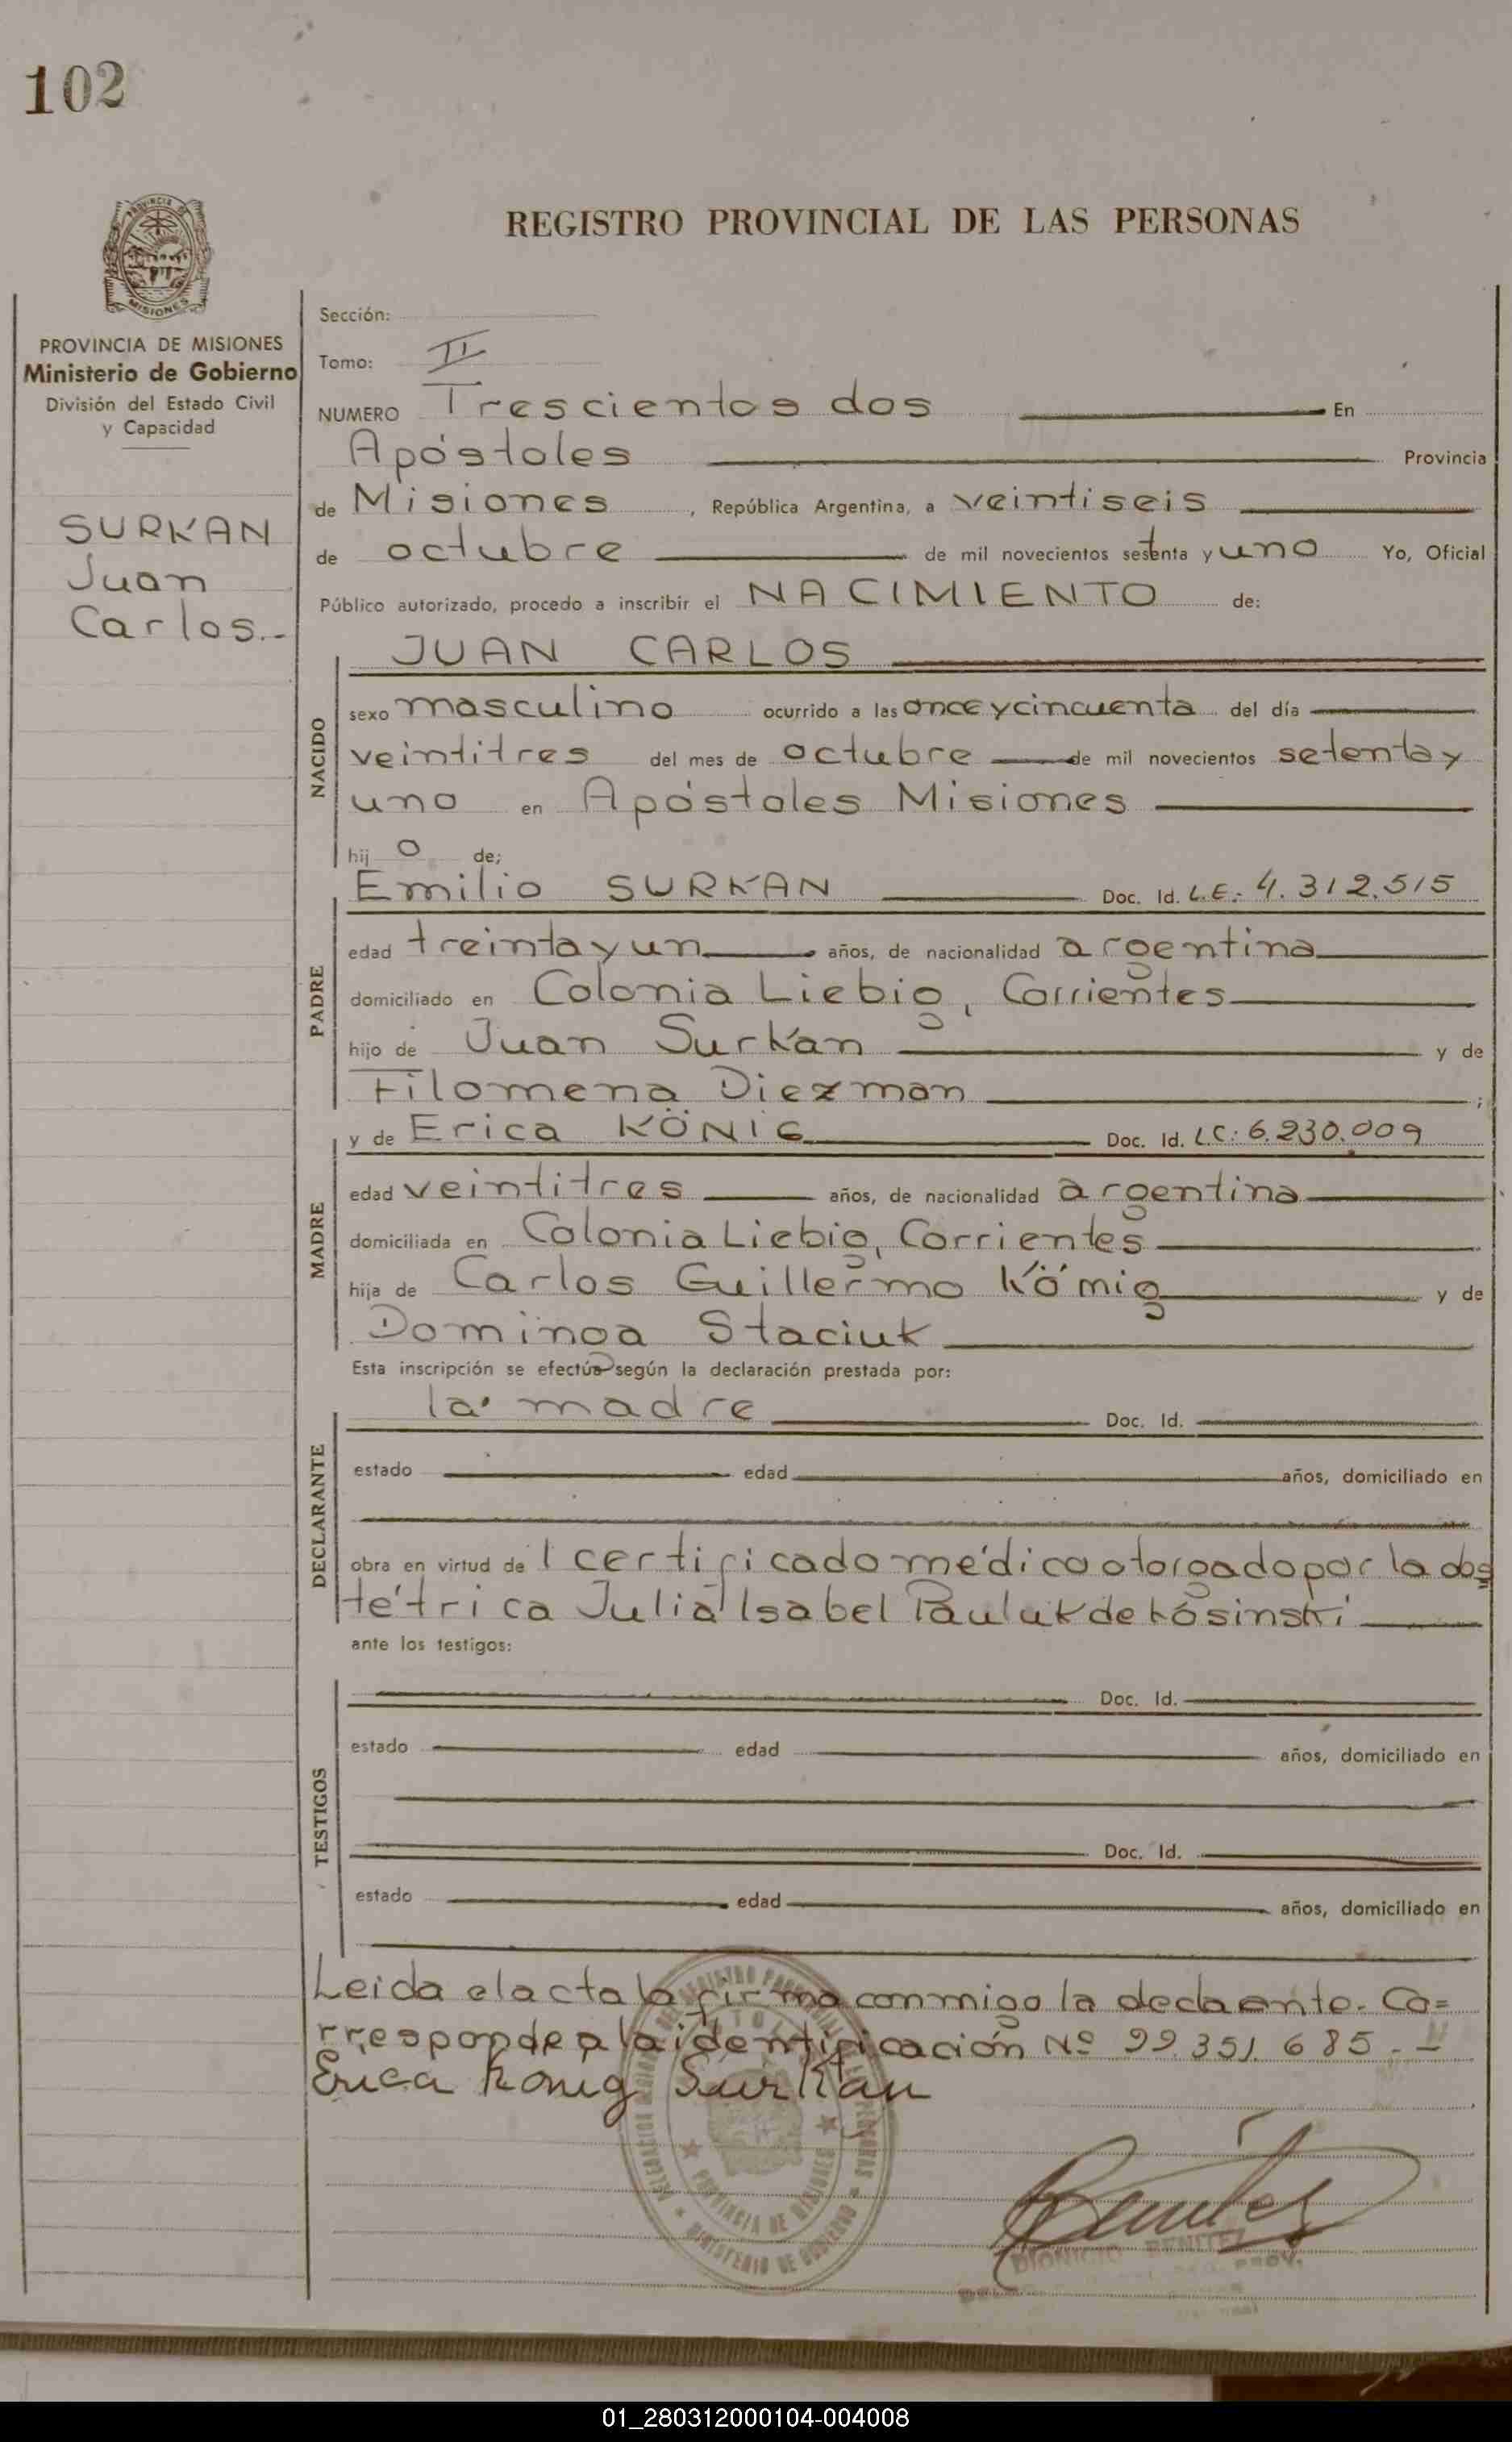 102
REGISTRO PROVINCIAL DE LAS PERSONAS
PROVINCIA DE MISIONES
Ministerio de Gobierno
División del Estado Civil
y Capacidad
SURKAN
Juan
Carlos.-
Sección:
Tomo: II
NUMERO Trescientos dos En
Apóstoles Provincia
de Misiones, República Argentina, a veintiseis
de octubre de mil novecientos setenta y uno Yo, Oficial
Público autorizado, procedo a inscribir el NACIMIENTO de:
JUAN CARLOS
NACIDO
sexo masculino ocurrido a las once y cincuenta del día
veintitres del mes de octubre de mil novecientos setenta y
uno en Apóstoles Misiones
hijo de;
Emilio SURKAN Doc. Id. L.E.: 4.312.515
PADRE
edad treinta y un años, de nacionalidad argentina
domiciliado en Colonia Liebig, Corrientes
hijo de Juan Surkan y de
Filomena Diezman ;
y de Erica KÖNIG Doc. Id. L.C: 6.230.009
MADRE
edad veintitres años, de nacionalidad argentina
domiciliada en Colonia Liebig, Corrientes
hija de Carlos Guillermo König y de
Dominga Staciuk
Esta inscripción se efectúa según la declaración prestada por:
la madre Doc. Id.
DECLARANTE
estado edad años, domiciliado en
obra en virtud de 1 certificado médico otorgado por la obs
tétrica Julia Isabel Pauluk de Kosinski
ante los testigos:
TESTIGOS
Doc. Id.
estado edad años, domiciliado en
Doc. Id.
estado edad años, domiciliado en
Leida el acta la firma conmigo la declaante. Co=
rresponde a la identificación Nº 99.351.685.-
Erica König Surkan
PROVINCIA DE MISIONES
MINISTERIO DE GOBIERNO
Benitez
DIONICIO BENITEZ
01_280312000104-004008